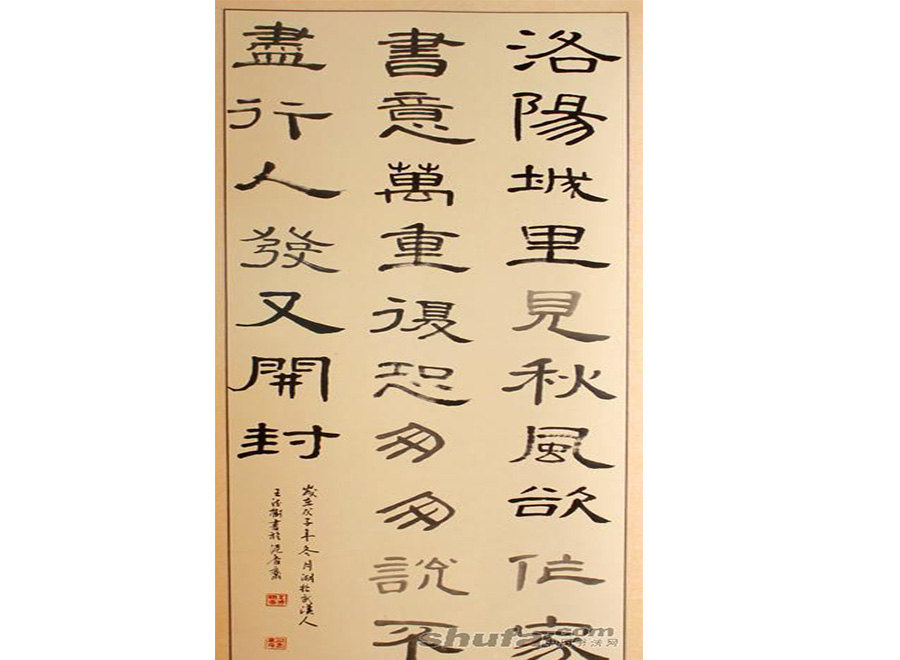 洛陽城里見秋風欲作家
書意萬重復恐匆匆説不
盡行人發又開封
歲在戊子年冬月湖北武漢人
shufa.com